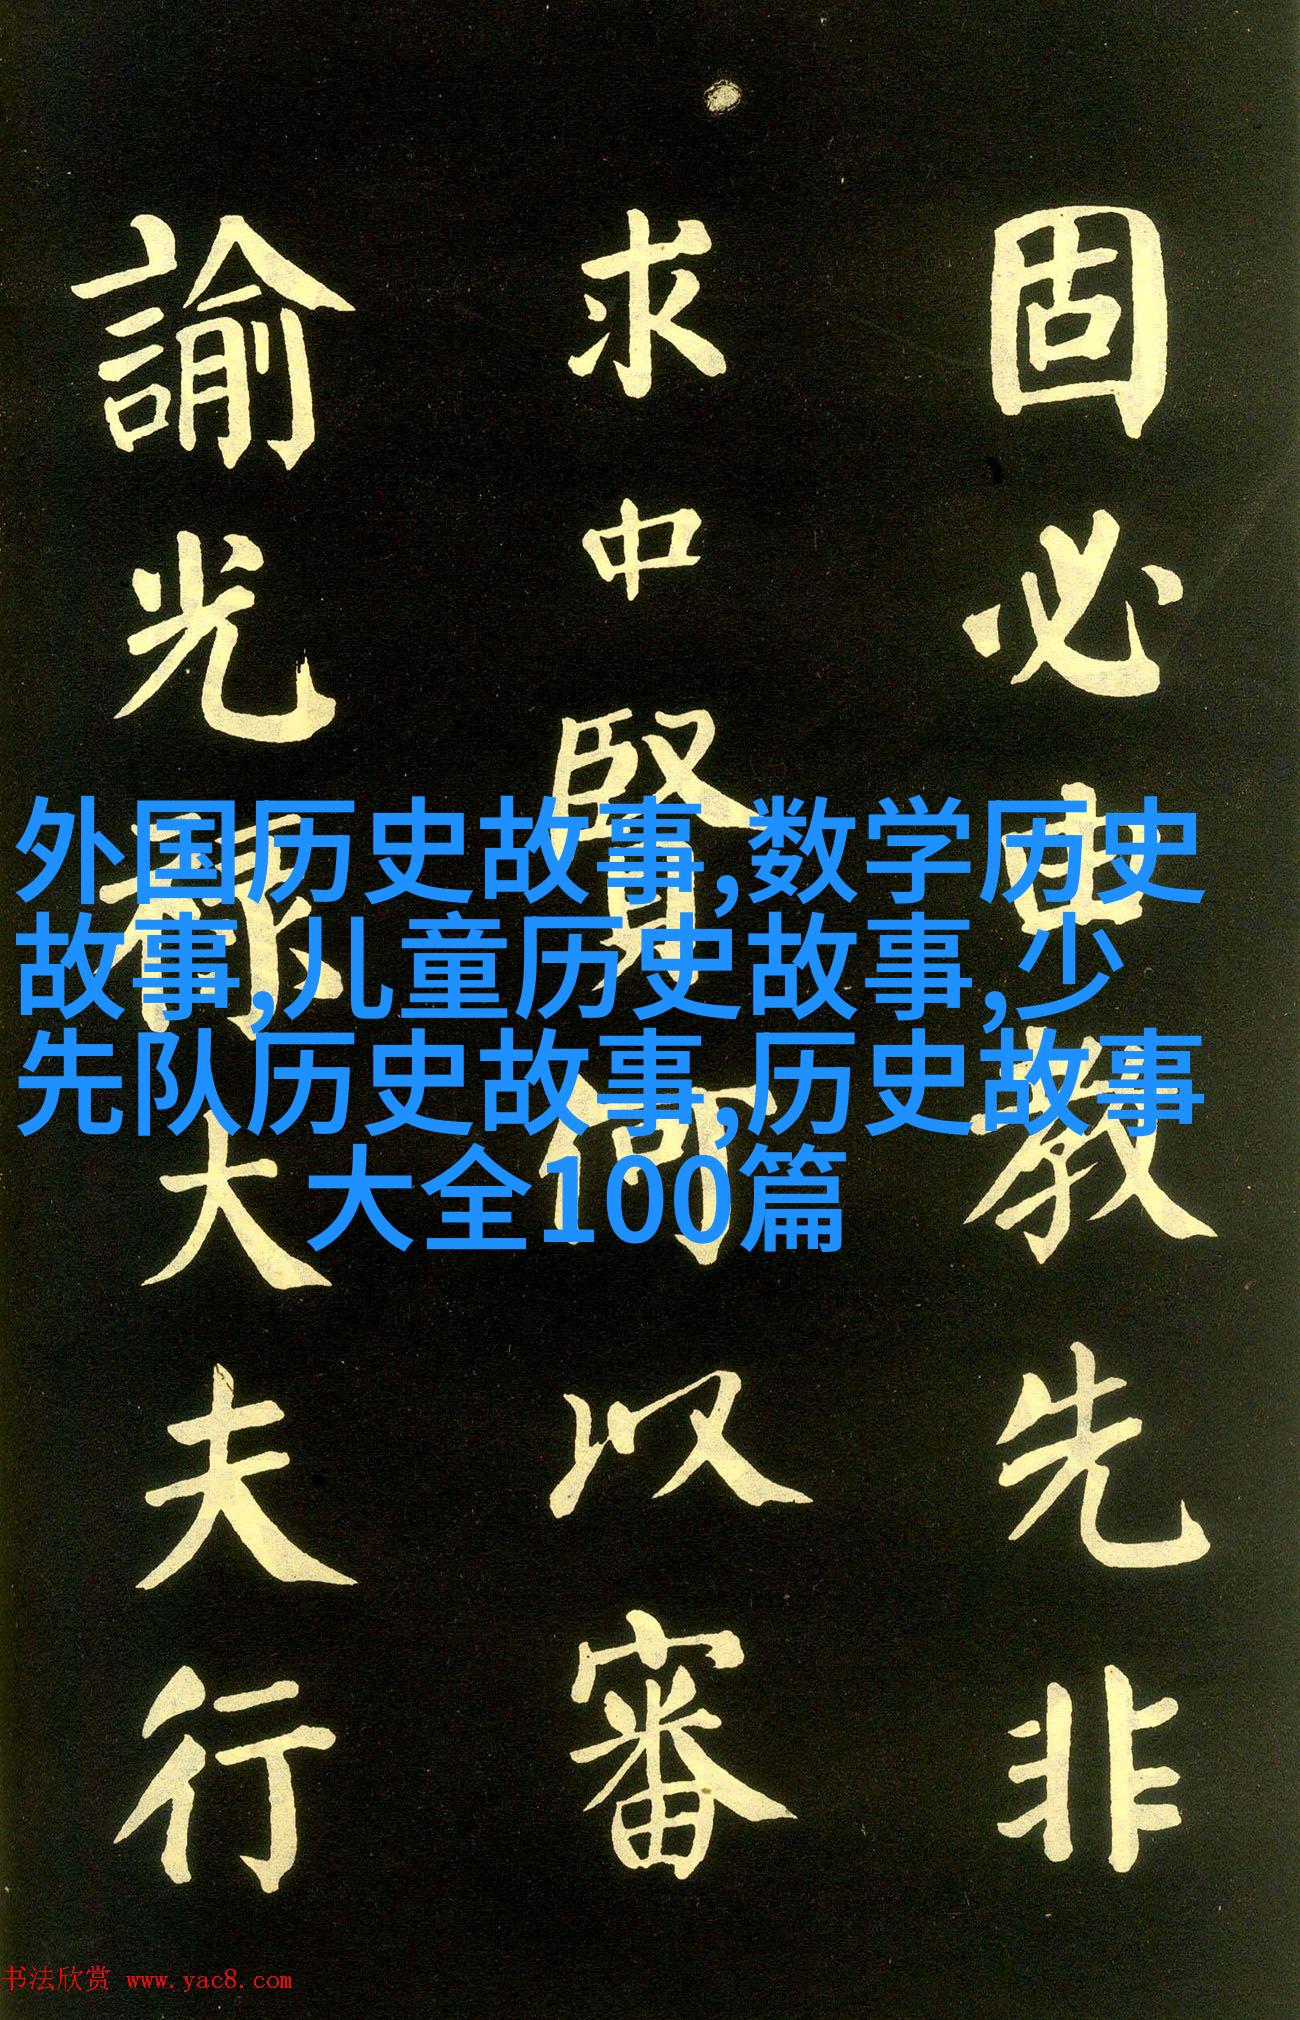 固必由教先非
求中賢何以審
諭光祿大夫行
外国历史故事,数学历史
故事,儿童历史故事,少
先队历史故事,历史故事
大全100篇
书法欣赏 www.yac8.com